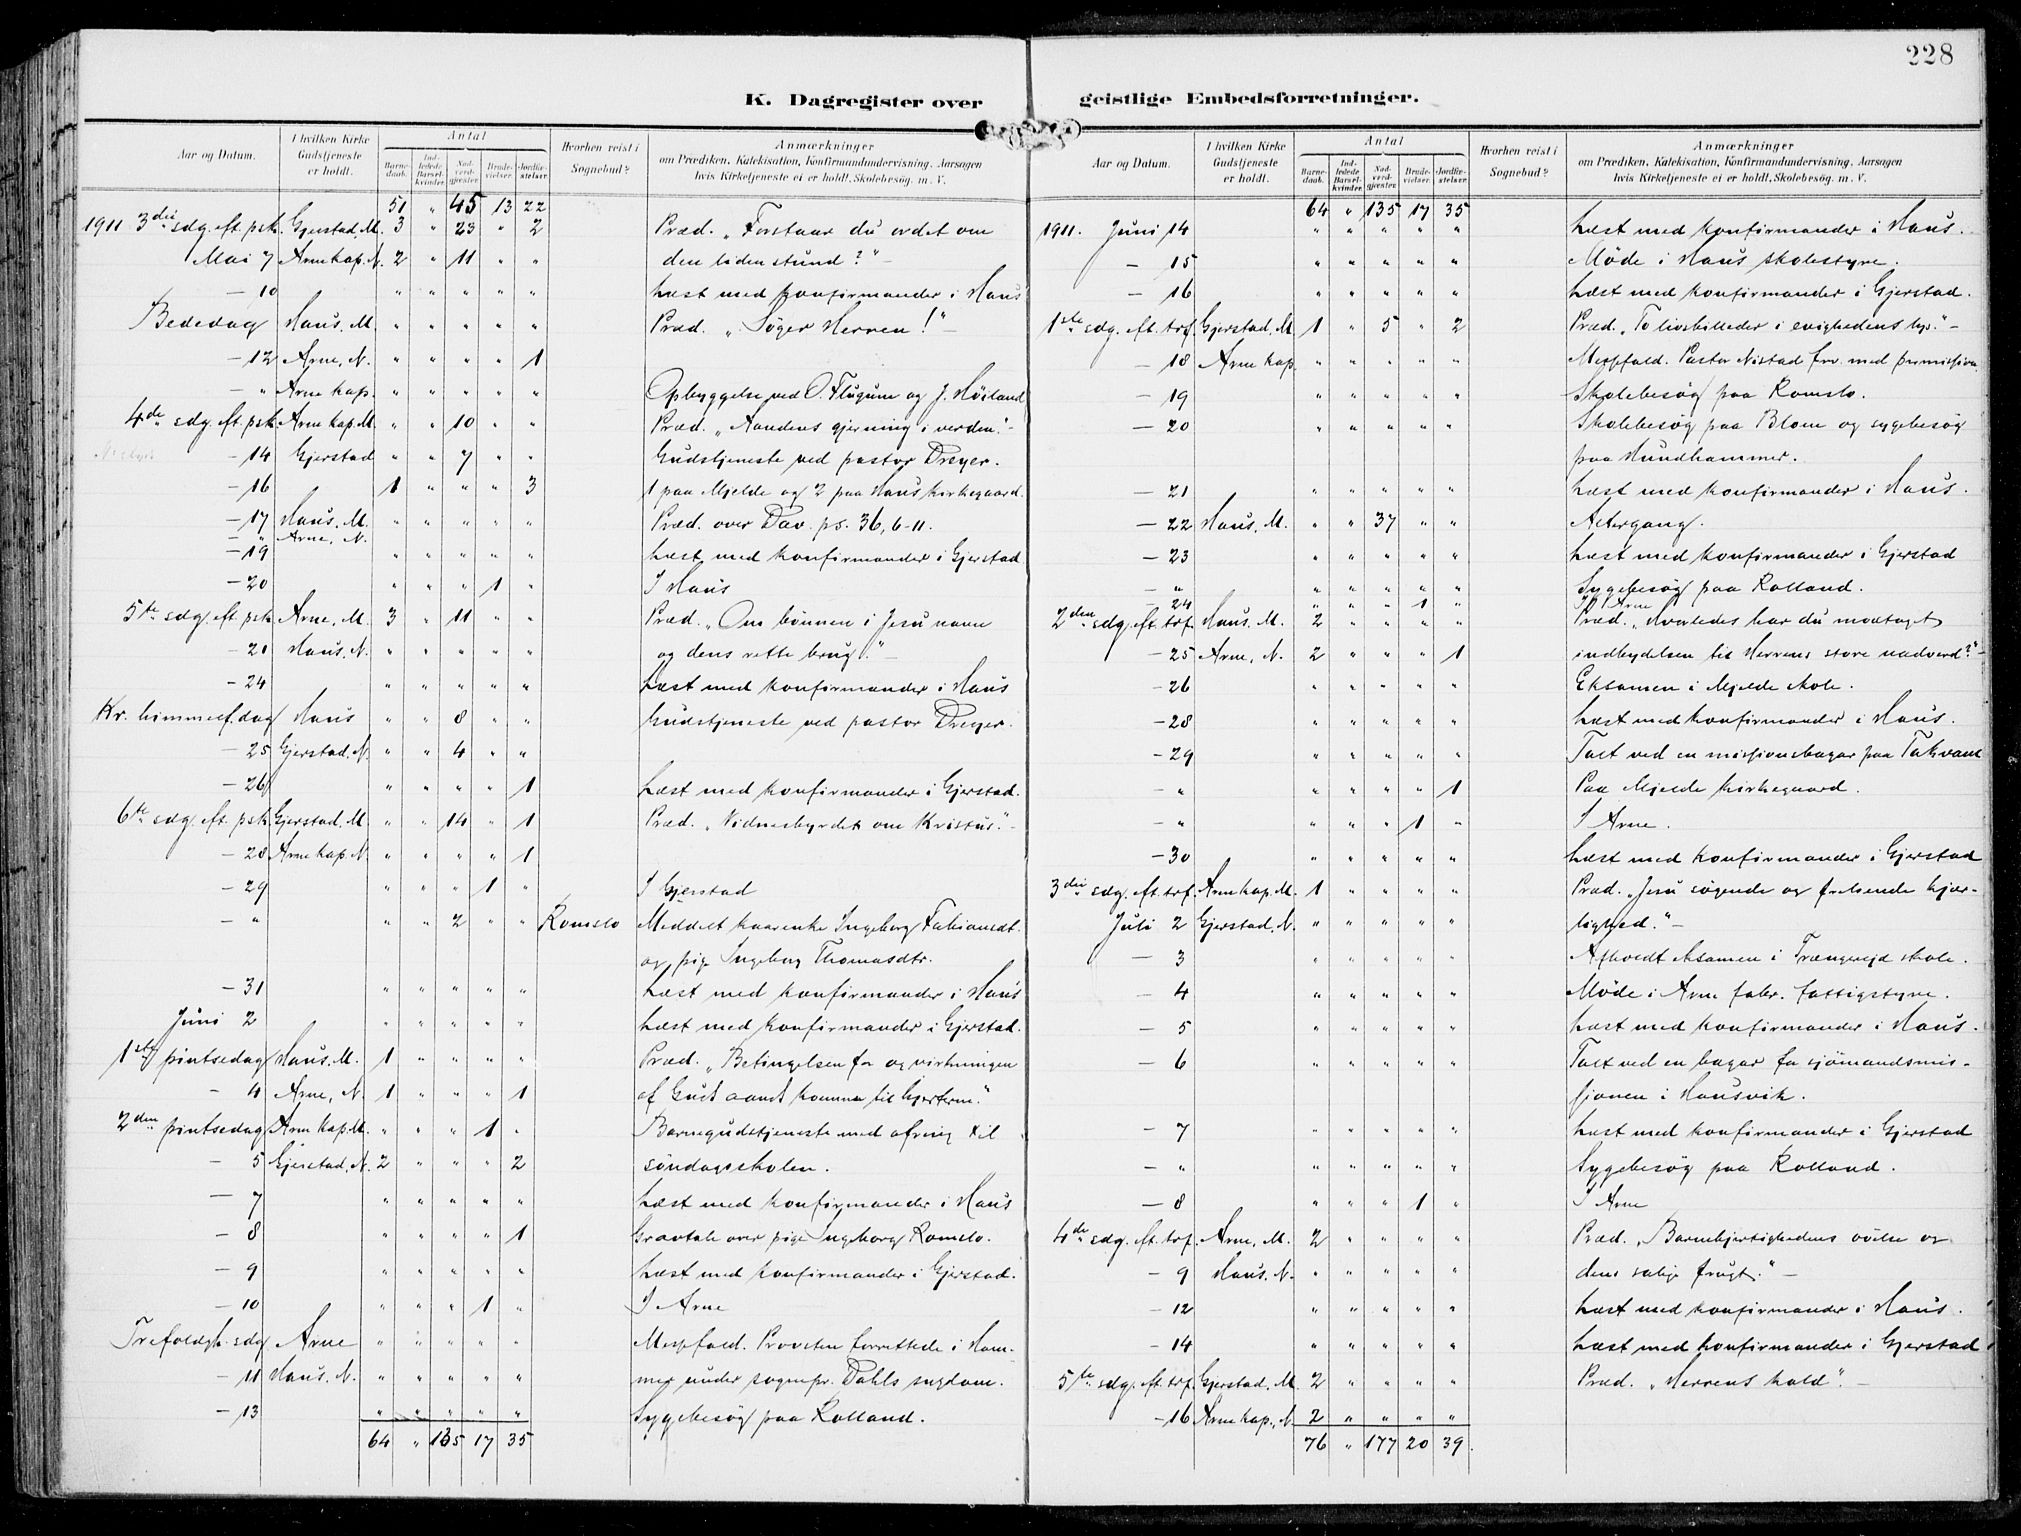 228
K. Dagregister over geistlige Embedsforretninger.
Aar og Datum. I hvilken Kirke Gudstjeneste er holdt. Antal Barnedaab. Indledede Barselkvinder. Nadverdgjester. Brudevielser. Jordfæstelser. Hvorhen reist i Sognebud? Anmærkninger om Prædiken, Katekisation, Konfirmandundervisning, Aarsagen hvis Kirketjeneste ei er holdt, Skolebesøg m. V.
51 " 45 13 22
1911 3die sdg. eft. psk. Gjerstad, M. 3 " 23 " 2 Præd. "Forstaar du ordet om
Mai 7 Arne kap. N. 2 " 11 " " den liden stund?"-
- 10 " " " " " Læst med konfirmander i Haus
Bededag Haus, M. " " " " " Præd. "Søger Herren!"-
- 12 Arne, N. " " " " 1
- " Arne kap. " " " " " Opbyggelse ved O. Flugum og J. Høiland
4de sdg. eft. psk. Arne kap. M. " " 10 " " Præd. "Aandens gjerning i verden."-
- 14 Gjerstad " " 7 " " Gudstjeneste ved pastor Dreyer.
- 16 1 " " " 3 1 paa Mjelde og 2 paa Haus kirkegaard.
- 17 Haus, M. " " " " " Præd. over Dav. ps. 36, 6-11.
- " Arne, N.
- 19 " " " " " Læst med konfirmander i Gjerstad
- 20 " " " 1 " I Haus
5te sdg. eft. psk. Arne, M. 3 " 11 " " Præd. "Om bønnen i Jesu navn
- 21 Haus, N. " " " " " og dens rette brug."-
- 24 " " " " " Læst med konfirmander i Haus
Kr. himmelf. dag Haus " " 8 " " Gudstjeneste ved pastor Dreyer.
- 25 Gjerstad, N. " " 4 " "
- 26 " " " " 1 Læst med konfirmander i Gjerstad.
6te sdg. eft. psk. Gjerstad, M. " " 14 " 1 Præd. "Vidnesbyrdet om Kristus."-
- 28 Arne kap. N. " " " " 1
- 29 " " " 1 " I Gjerstad
- " " " 2 " " Romslo Meddelt kaarenke Ingeborg Fabiansdt.
og pige Ingeborg Thomasdtr.
- 31 " " " " " Læst med konfirmander i Haus
Juni 2 " " " " " Læst med konfirmander i Gjerstad.
1ste pintsedag Haus, M. 1 " " " " Præd. "Betingelsen for og virkningen
- 4 Arne, N. 1 " " " 1 af Guds aands komme til hjerterne."
2den pintsedag Arne kap. M. " " " 1 " Barnegudstjeneste med ofring til
- 5 Gjerstad, N. 2 " " " 2 søndagsskolen.
- 7 " " " " " Læst med konfirmander i Haus
- 8 " " " " 1 Gravtale over pige Ingeborg Romslo.
- 9 " " " " " Læst med konfirmander i Gjerstad.
- 10 " " " 1 " I Arne
Trefoldigh. sdg Arne " " " " " Messfald. Provsten forrettede i Ham-
- 11 Haus, N. " " " " " mer under sognepr. Dahls sygdom.
- 13 " " " " " Sygebesøg paa Rolland.
64 " 135 17 35
Aar og Datum. I hvilken Kirke Gudstjeneste er holdt. Antal Barnedaab. Indledede Barselkvinder. Nadverdgjester. Brudevielser. Jordfæstelser. Hvorhen reist i Sognebud? Anmærkninger om Prædiken, Katekisation, Konfirmandundervisning, Aarsagen hvis Kirketjeneste ei er holdt, Skolebesøg m. V.
64 " 135 17 35
1911. Juni 14 " " " " " Læst med konfirmander i Haus.
- 15 " " " " " Møde i Haus skolestyre.
- 16 " " " " " Læst med konfirmander i Gjerstad.
1ste sdg. eft. trf. Gjerstad, M. 1 " 5 " 2 Præd. "To livsbilleder i evighedens lys."-
- 18 Arne kap. " " " " " Messfald. Pastor Nistad frv. med permission
- 19 " " " " " Skolebesøg paa Romslo.
- 20 " " " " " Skolebesøg paa Blom og sygebesøg
paa Hundhammer.
- 21 " " " " " Læst med konfirmander i Haus.
- 22 Haus, M. " " 37 " " Altergang.
- 23 " " " " " Læst med konfirmander i Gjerstad
- " " " " " " Sygebesøg paa Rolland.
- 24 " " " 1 " I Arne
2den sdg. eft. trf. Haus, M. 2 " " " " Præd. "Hvorledes har du modtaget
- 25 Arne, N. 2 " " " 1 indbydelsen til Herrens store nadverd?"-
- 26 " " " " " Eksamen i Mjelde skole.
- 28 " " " " " Læst med konfirmander i Haus.
- 29 " " " " " Talt ved en missionsbazar paa Takvam
- " " " " " 1 Paa Mjelde kirkegaard.
- " " " " 1 " I Arne.
- 30 " " " " " Læst med konfirmander i Gjerstad
3die sdg. eft. trf. Arne kap. M. 1 " " " " Præd. "Jesu søgende og frelsende kjær-
Juli 2 Gjerstad, N. " " " " " lighed."-
- 3 " " " " " Afholdt eksamen i Trængereid skole.
- 4 " " " " " Møde i Arne fabr. fattigstyre.
- 5 " " " " " Læst med konfirmander i Haus.
- 6 " " " " " Talt ved en bazar for sjømandsmis-
sjonen i Hausvik.
- 7 " " " " " Læst med konfirmander i Gjerstad
- " " " " " " Sygebesøg paa Rolland.
- 8 " " " 1 " I Arne
4de sdg. eft. trf. Arne, M. 2 " " " " Præd. "Barmhjertighedens øvelse og
- 9 Haus, N. " " " " " dens salige frugt."-
- 12 " " " " " Læst med konfirmander i Haus.
- 14 " " " " " Læst med konfirmander i Gjerstad
5te sdg. eft. trf. Gjerstad, M. 2 " " " " Præd. "Herrens kald".-
- 16 Arne kap., N. 2 " " " "
76 " 177 20 39.